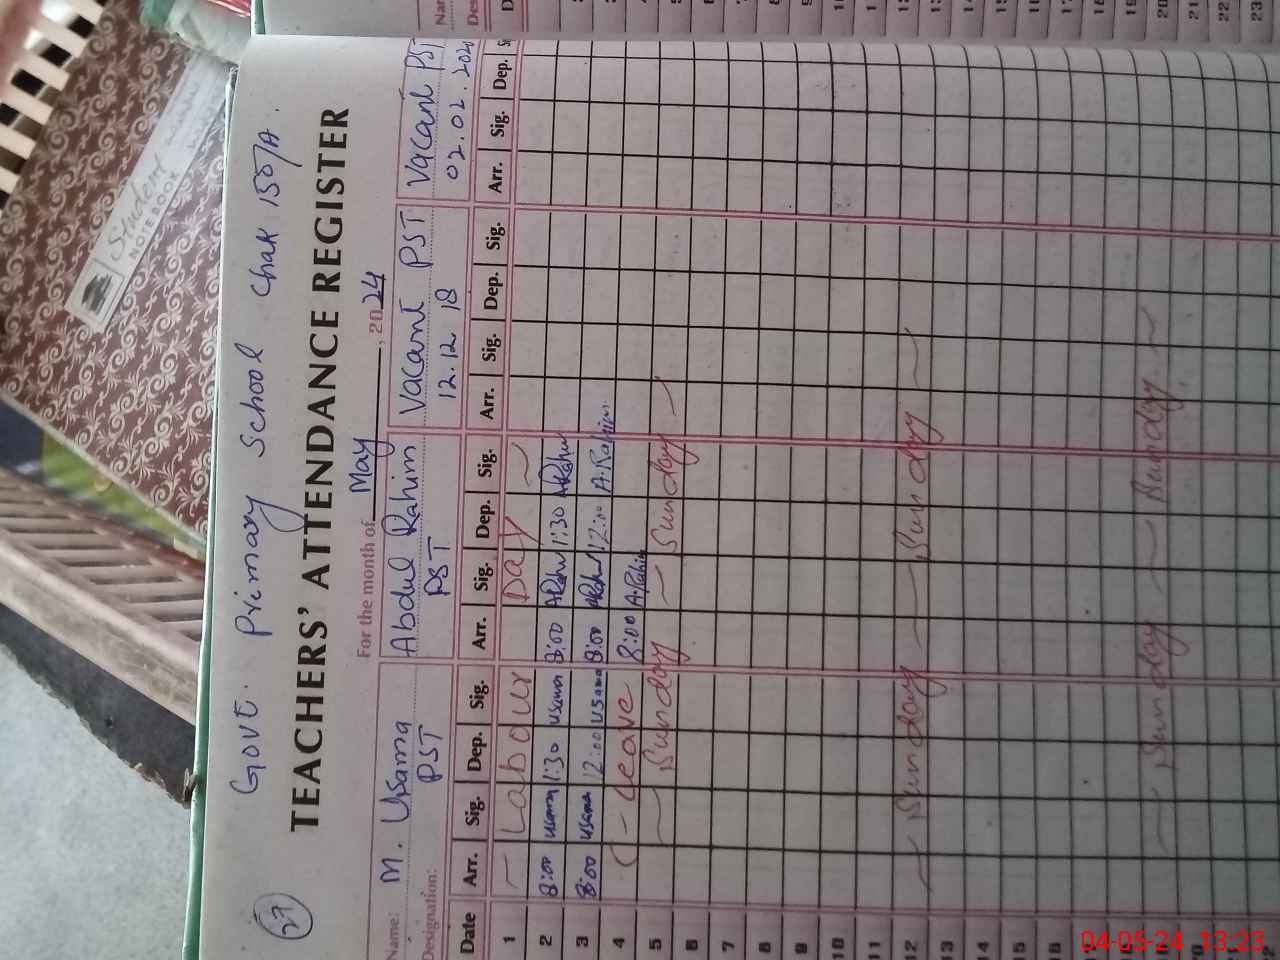 27
Govt. Primary School Chak 155/A.
TEACHERS' ATTENDANCE REGISTER
For the month of May, 2024
Name: M. Usama Abdul Rahim Vacant PST Vacant PST
Designation: PST PST 12.12 18 02.02.202
Date Arr. Sig. Dep. Sig. Arr. Sig. Dep. Sig. Arr. Sig. Dep. Sig. Arr. Sig. Dep.
1 Labour Day
2 8:00 usama 1:30 usama 8:00 ARahim 1:30 ARahim
3 8:00 usama 12:00 usama 8:00 ARahim 12:00 A.Rahim
4 Leave 8:00 A.Rahim
5 Sunday Sunday
6
7
8
9
10
11
12 Sunday Sunday
13
14
15
16
Sunday Sunday
Student
NOTEBOOK
10
11
12
13
14
15
16
17
18
19
20
21
22
23
04-05-24 13:23